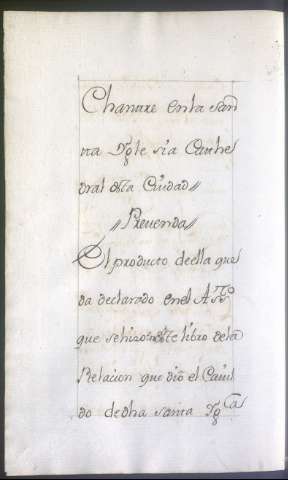 Chantre en la San
ta Ygle sia Cathe
dral dsta Ciudad//
//Prevenda//
El producto de ella que
da declarado en el
que se hizo en este libro de la
Relacion que dió el Cavil
do de dha Santa Yg